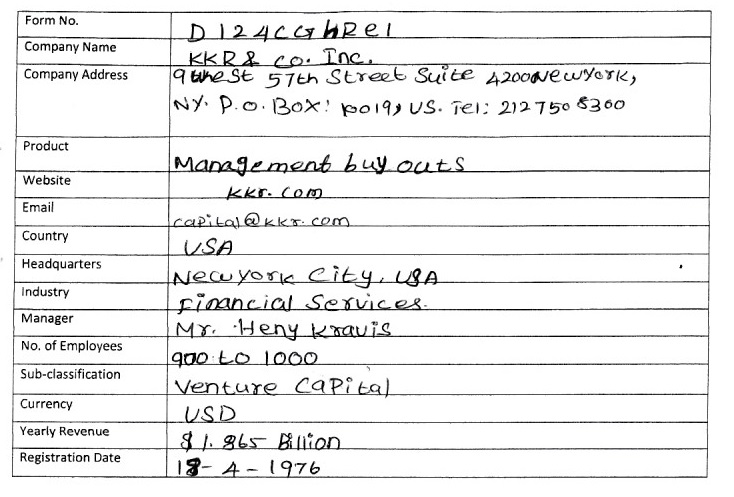 Form No. D124CGhRE1
Company Name KKR & Co. Inc.
Company Address 9 West 57th Street Suite 4200 Newyork,
NY. P.O. BOX: 10019, US. Tel: 212 750 8300
Product Management buy outs
Website kkr.com
Email capital@kkr.com
Country USA
Headquarters Newyork City, USA
Industry Financial Services.
Manager Mr. Heny Kravis
No. of Employees 900 to 1000
Sub-classification Venture Capital
Currency USD
Yearly Revenue $1.865 Billion
Registration Date 18-4-1976